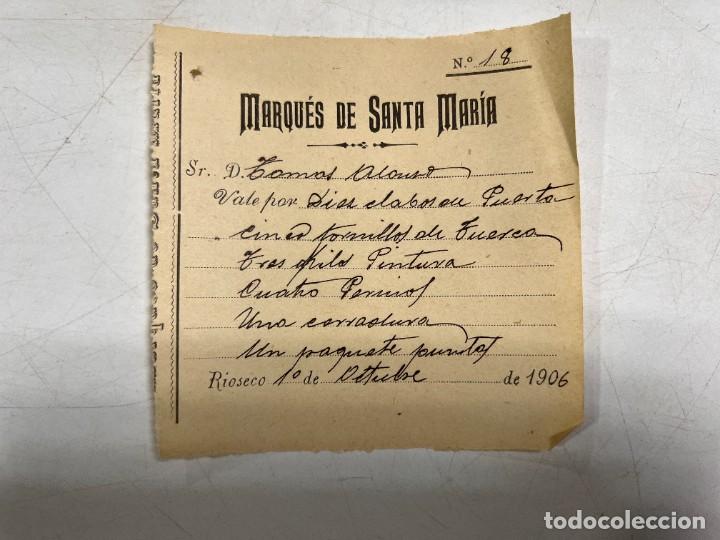 N.º 18
MARQUÉS DE SANTA MARÍA
Sr. D. Tomas Alonso
Vale por Diez clabos de Puerta
cinco tornillos de Tuerca
Tres kilos Pintura
Cuatro Pernios
Una cerradura
Un paquete puntas
Rioseco 1º de Octubre de 1906
todocoleccion.net